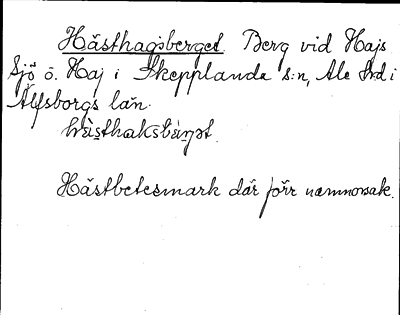 Hästhagsberget Berg vid Hajs
Sjö ö. Haj i Skepplanda s:n, Ale hd i
Älfsborgs län.
Hästbetesmark där förr namnorsak.